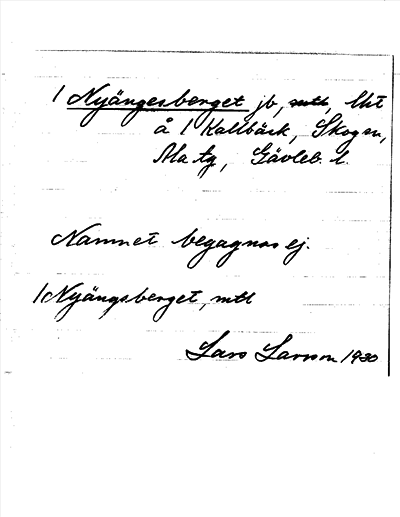 1 Nyängesberget jb, mtl, Utt
å 1 Kallbäck, Skog sn,
Ala tg, Gävleb. l.
Namnet begagnas ej.
1 Nyängsberget, mtl
Lars Larsson 1930